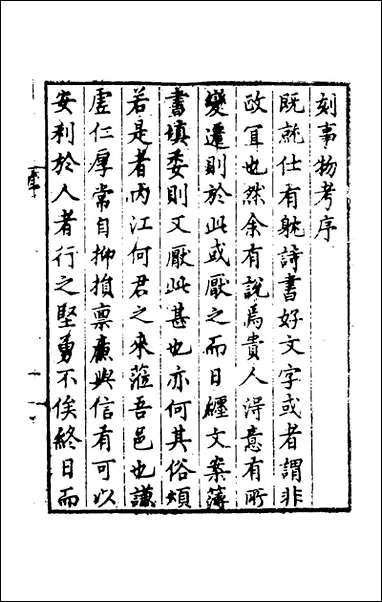 刻事物考序
既就仕有躭詩書好文字或者謂非
政冝也然余有說焉貴人得意有所
變遷則於此或厭之而日纒文案簿
書填委則又厭此甚也亦何其俗煩
若是者内江何君之来蒞吾邑也謙
虗仁厚常自抑損禀㢘與信有可以
安利於人者行之堅勇不俟終日而
序
一